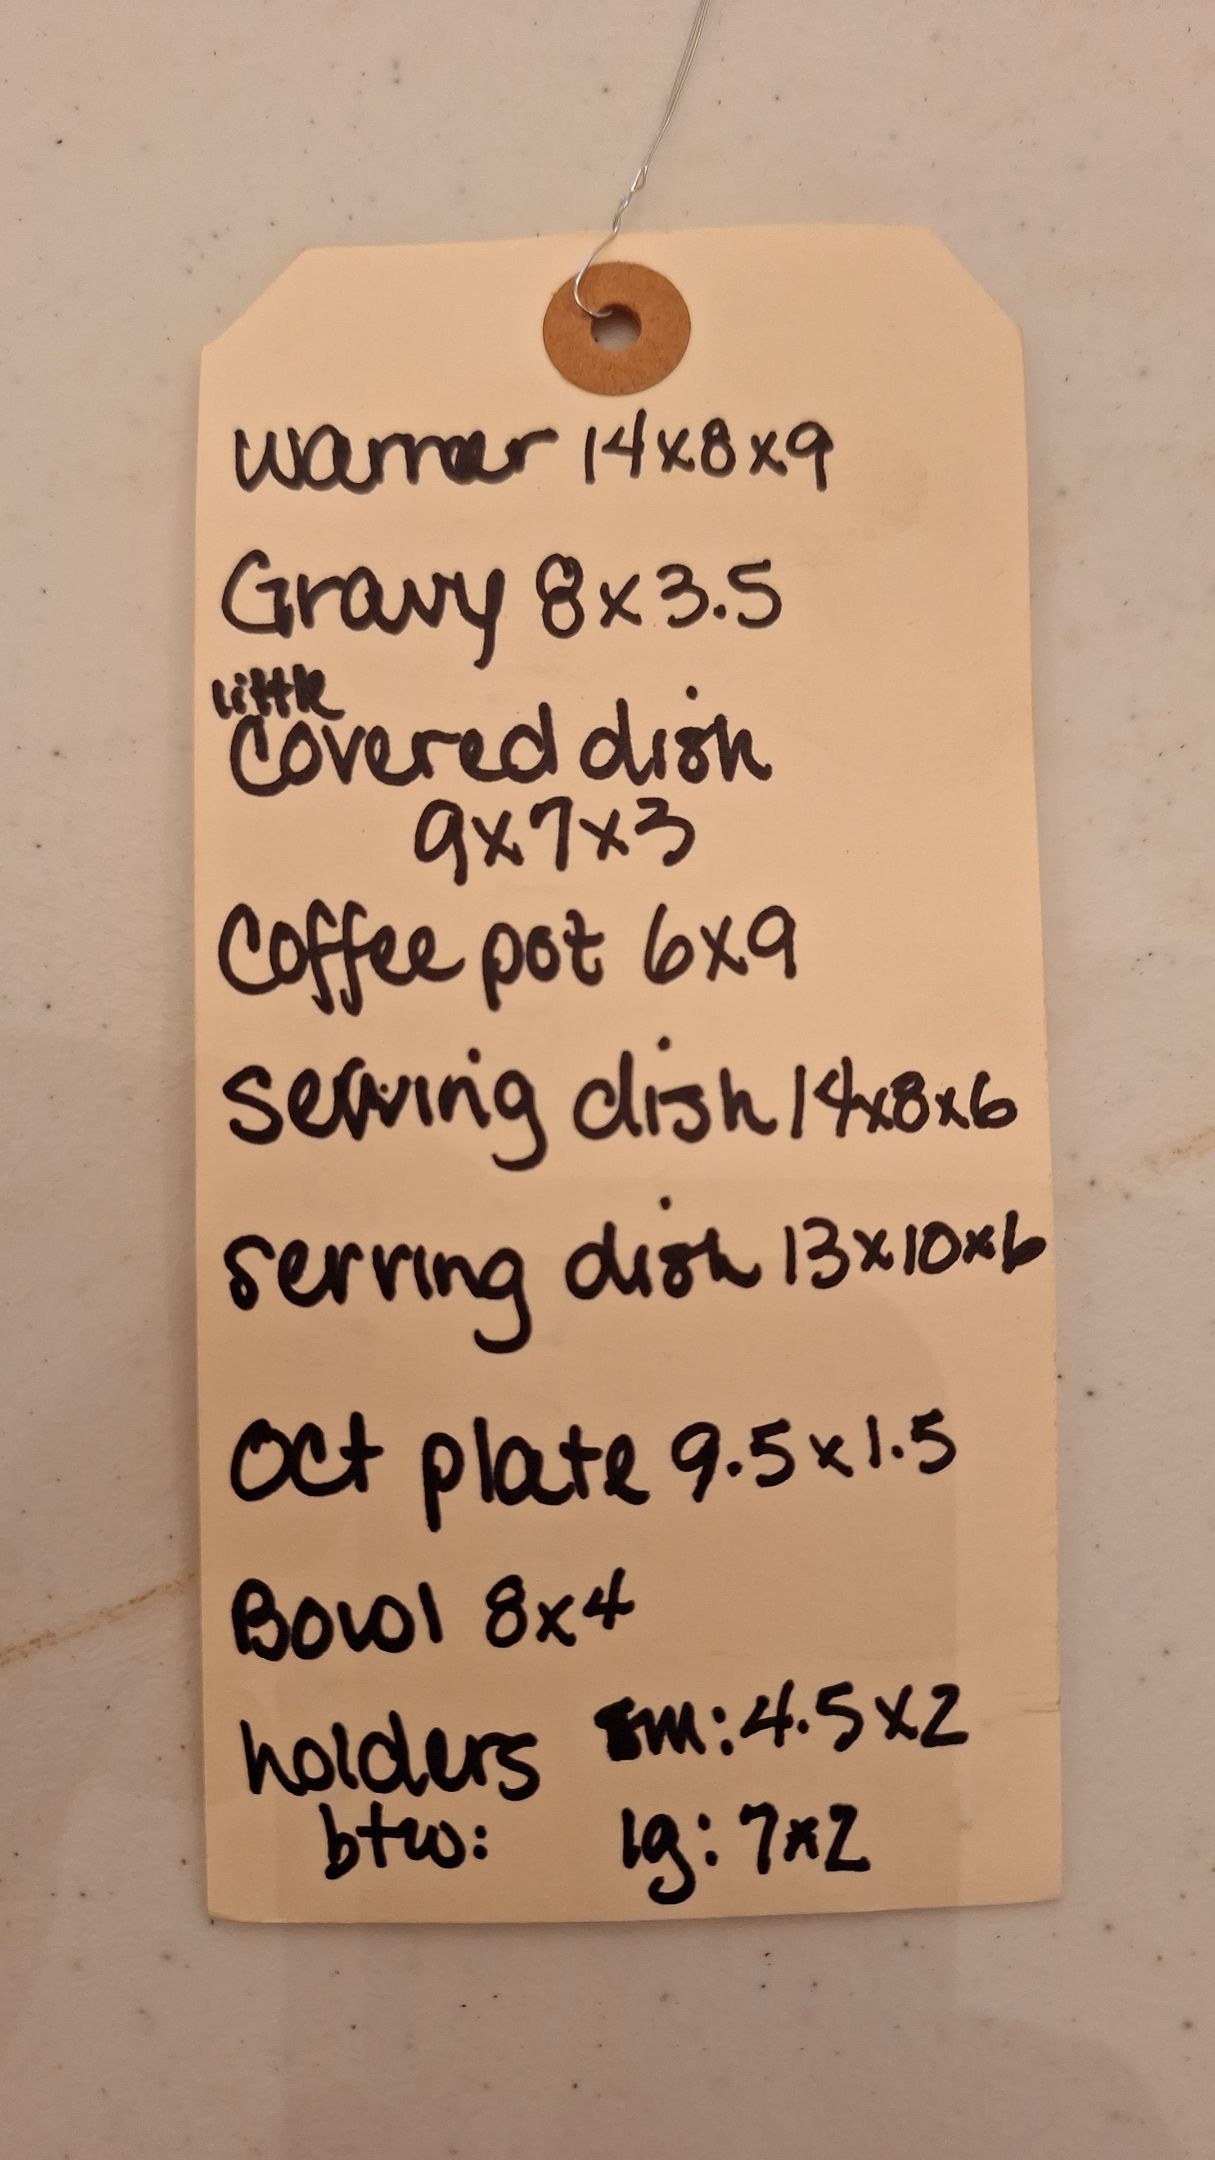 warmer 14x8x9
Gravy 8x3.5
little
covered dish
9x7x3
Coffee pot 6x9
serving dish 14x8x6
serving dish 13x10x6
Oct plate 9.5x1.5
Bowl 8x4
holders sm: 4.5x2
btw: lg: 7x2